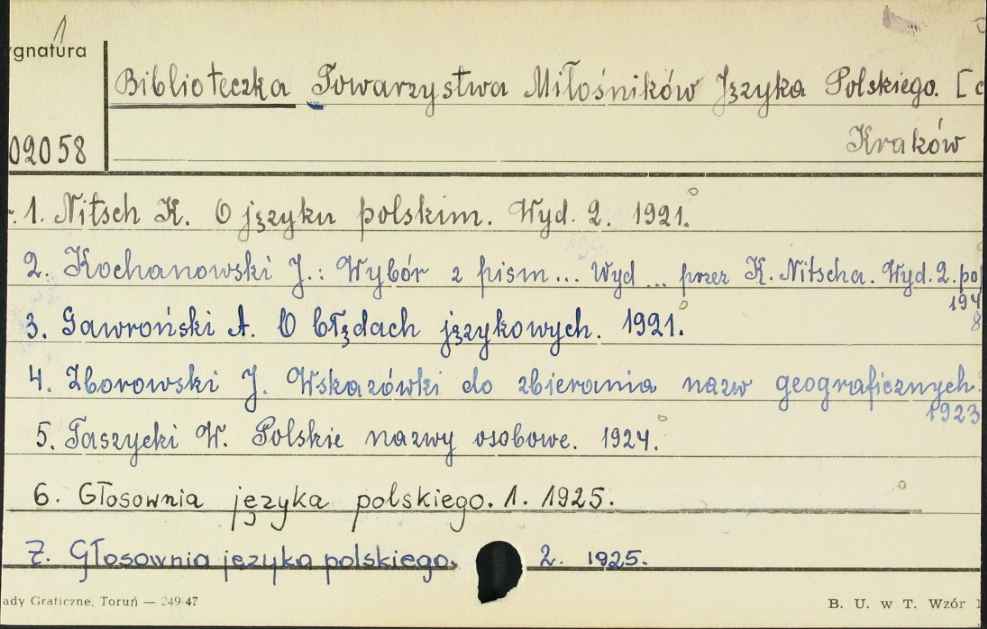 1
ygnatura
Biblioteczka Towarzystwa Miłośników Języka Polskiego. [c
02058
Kraków
1. Nitsch K. O języku polskim. Wyd. 2. 1921.
2. Kochanowski J.: Wybór z pism... Wyd... przez K. Nitscha. Wyd. 2. po
194
8
3. Gawroński A. O błędach językowych. 1921.
4. Zborowski J. Wskazówki do zbierania nazw geograficznych.
1923
5. Taszycki W. Polskie nazwy osobowe. 1924.
6. Głosownia języka polskiego. 1. 1925.
7. Głosownia języka polskiego. 2. 1925.
ady Graficzne, Toruń — 249/47
B. U. w T. Wzór 1